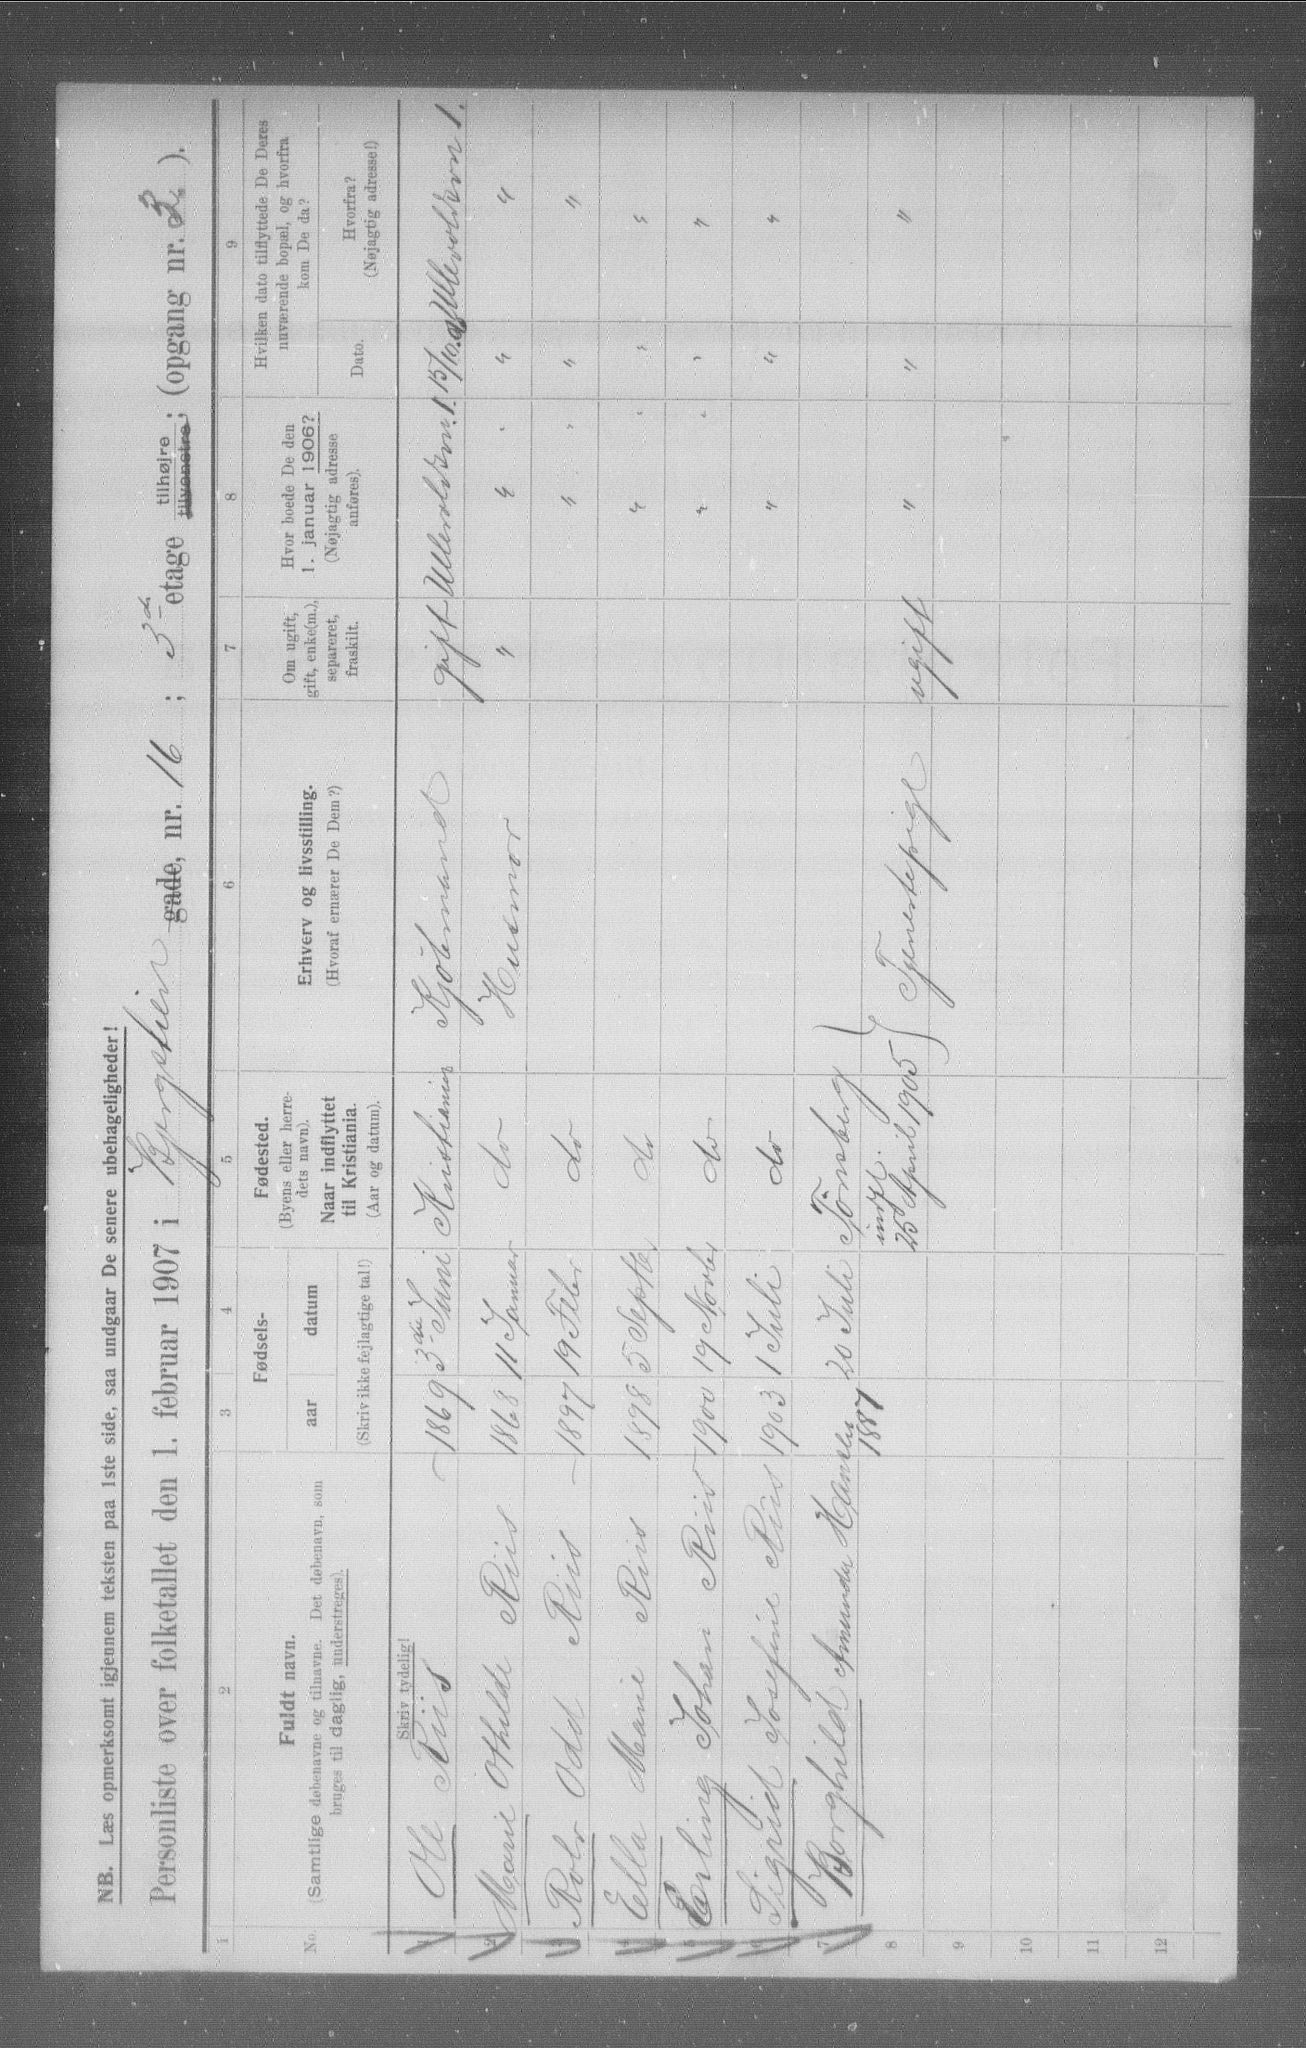 NB. Læs opmerksomt igjennem teksten paa 1ste side, saa undgaar De senere ubehageligheder!
Personliste over folketallet den 1. februar 1907 i Bergstien gade, nr. 16 ; 3d etage tilhøjre tilvenstre; (opgang nr. 3 ).
1 2 3 4 5 6 7 8 9
No.
Fuldt navn.
(Samtlige døbenavne og tilnavne. Det døbenavn, som
bruges til daglig, understreges).
Fødsels-
aar datum
(Skriv ikke fejlagtige tal!)
Fødested.
(Byens eller herre-
dets navn).
Naar indflyttet
til Kristiania.
(Aar og datum).
Erhverv og livsstilling.
(Hvoraf ernærer De Dem?)
Om ugift,
gift, enke(m.),
separeret,
fraskilt.
Hvor boede De den
1. januar 1906?
(Nøjagtig adresse
anføres).
Hvilken dato tilflyttede De Deres
nuværende bopæl, og hvorfra
kom De da?
Dato.
Hvorfra?
(Nøjagtig adresse!)
Skriv tydelig!
1 Ole Riis 1869 3die Juni Kristiania Kjøbmand gift Ullevoldsvn. 1. 13/10 Ullevoldsvn 1.
2 Marie Othilde Riis 1868 11 Januar do Husmor " " " "
3 Rolv Odd Riis 1897 19 Febr do " " "
4 Ella Marie Riis 1898 5 Septbr do " " "
5 Erling Johan Riis 1900 19 Novbr do " " "
6 Sigrid Josefine Riis 1903 1 Juli do " " "
7 Borghild Amunda Hansen 1887 20 Juli Tønsberg
indfl.
25 April 1905 } Tjenestepige ugift " " "
8
9
10
11
12